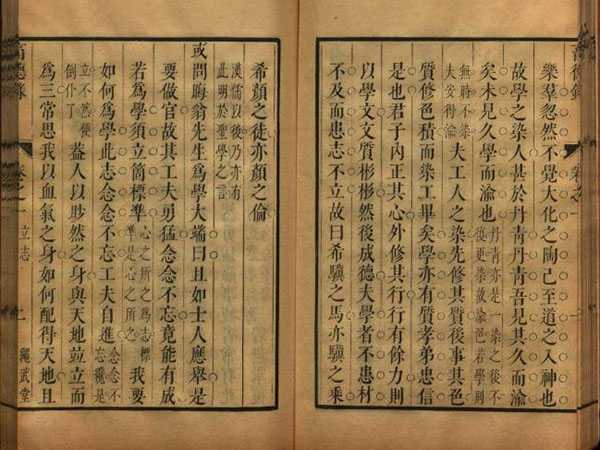 樂羣忽然不覺大化之陶己至道之入神也
故學之染人甚於丹青丹青吾見其久而渝
矣未見久學而渝也丹青亦是一染之後不復更染故渝色若學則
無時不染夫安得渝夫工人之染先修其質後事其色
質修色積而染工畢矣學亦有質孝弟忠信
是也君子內正其心外修其行行有餘力則
以學文文質彬彬然後成德夫學者不患材
不及而患志不立故曰希驥之馬亦驥之乘
希顏之徒亦顏之倫
漢儒以後乃亦有此明於聖學之言
或問晦翁先生為學大端曰且如士人應舉是
要做官故其工夫勇猛念念不忘竟能有成
若為學須立箇標準心之所之為志標準是心之所之我要
如何為學此志念念不忘工夫自進念念不忘纔是
立不然便倒仆了蓋人以眇然之身與天地竝立而
為三常思我以血氣之身如何配得天地且
卷之一 立志 繩武堂